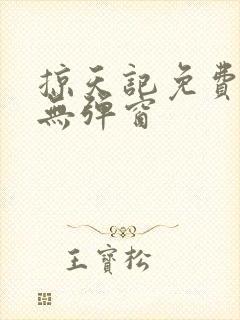 掠天記免費
無彈窗
王寶松